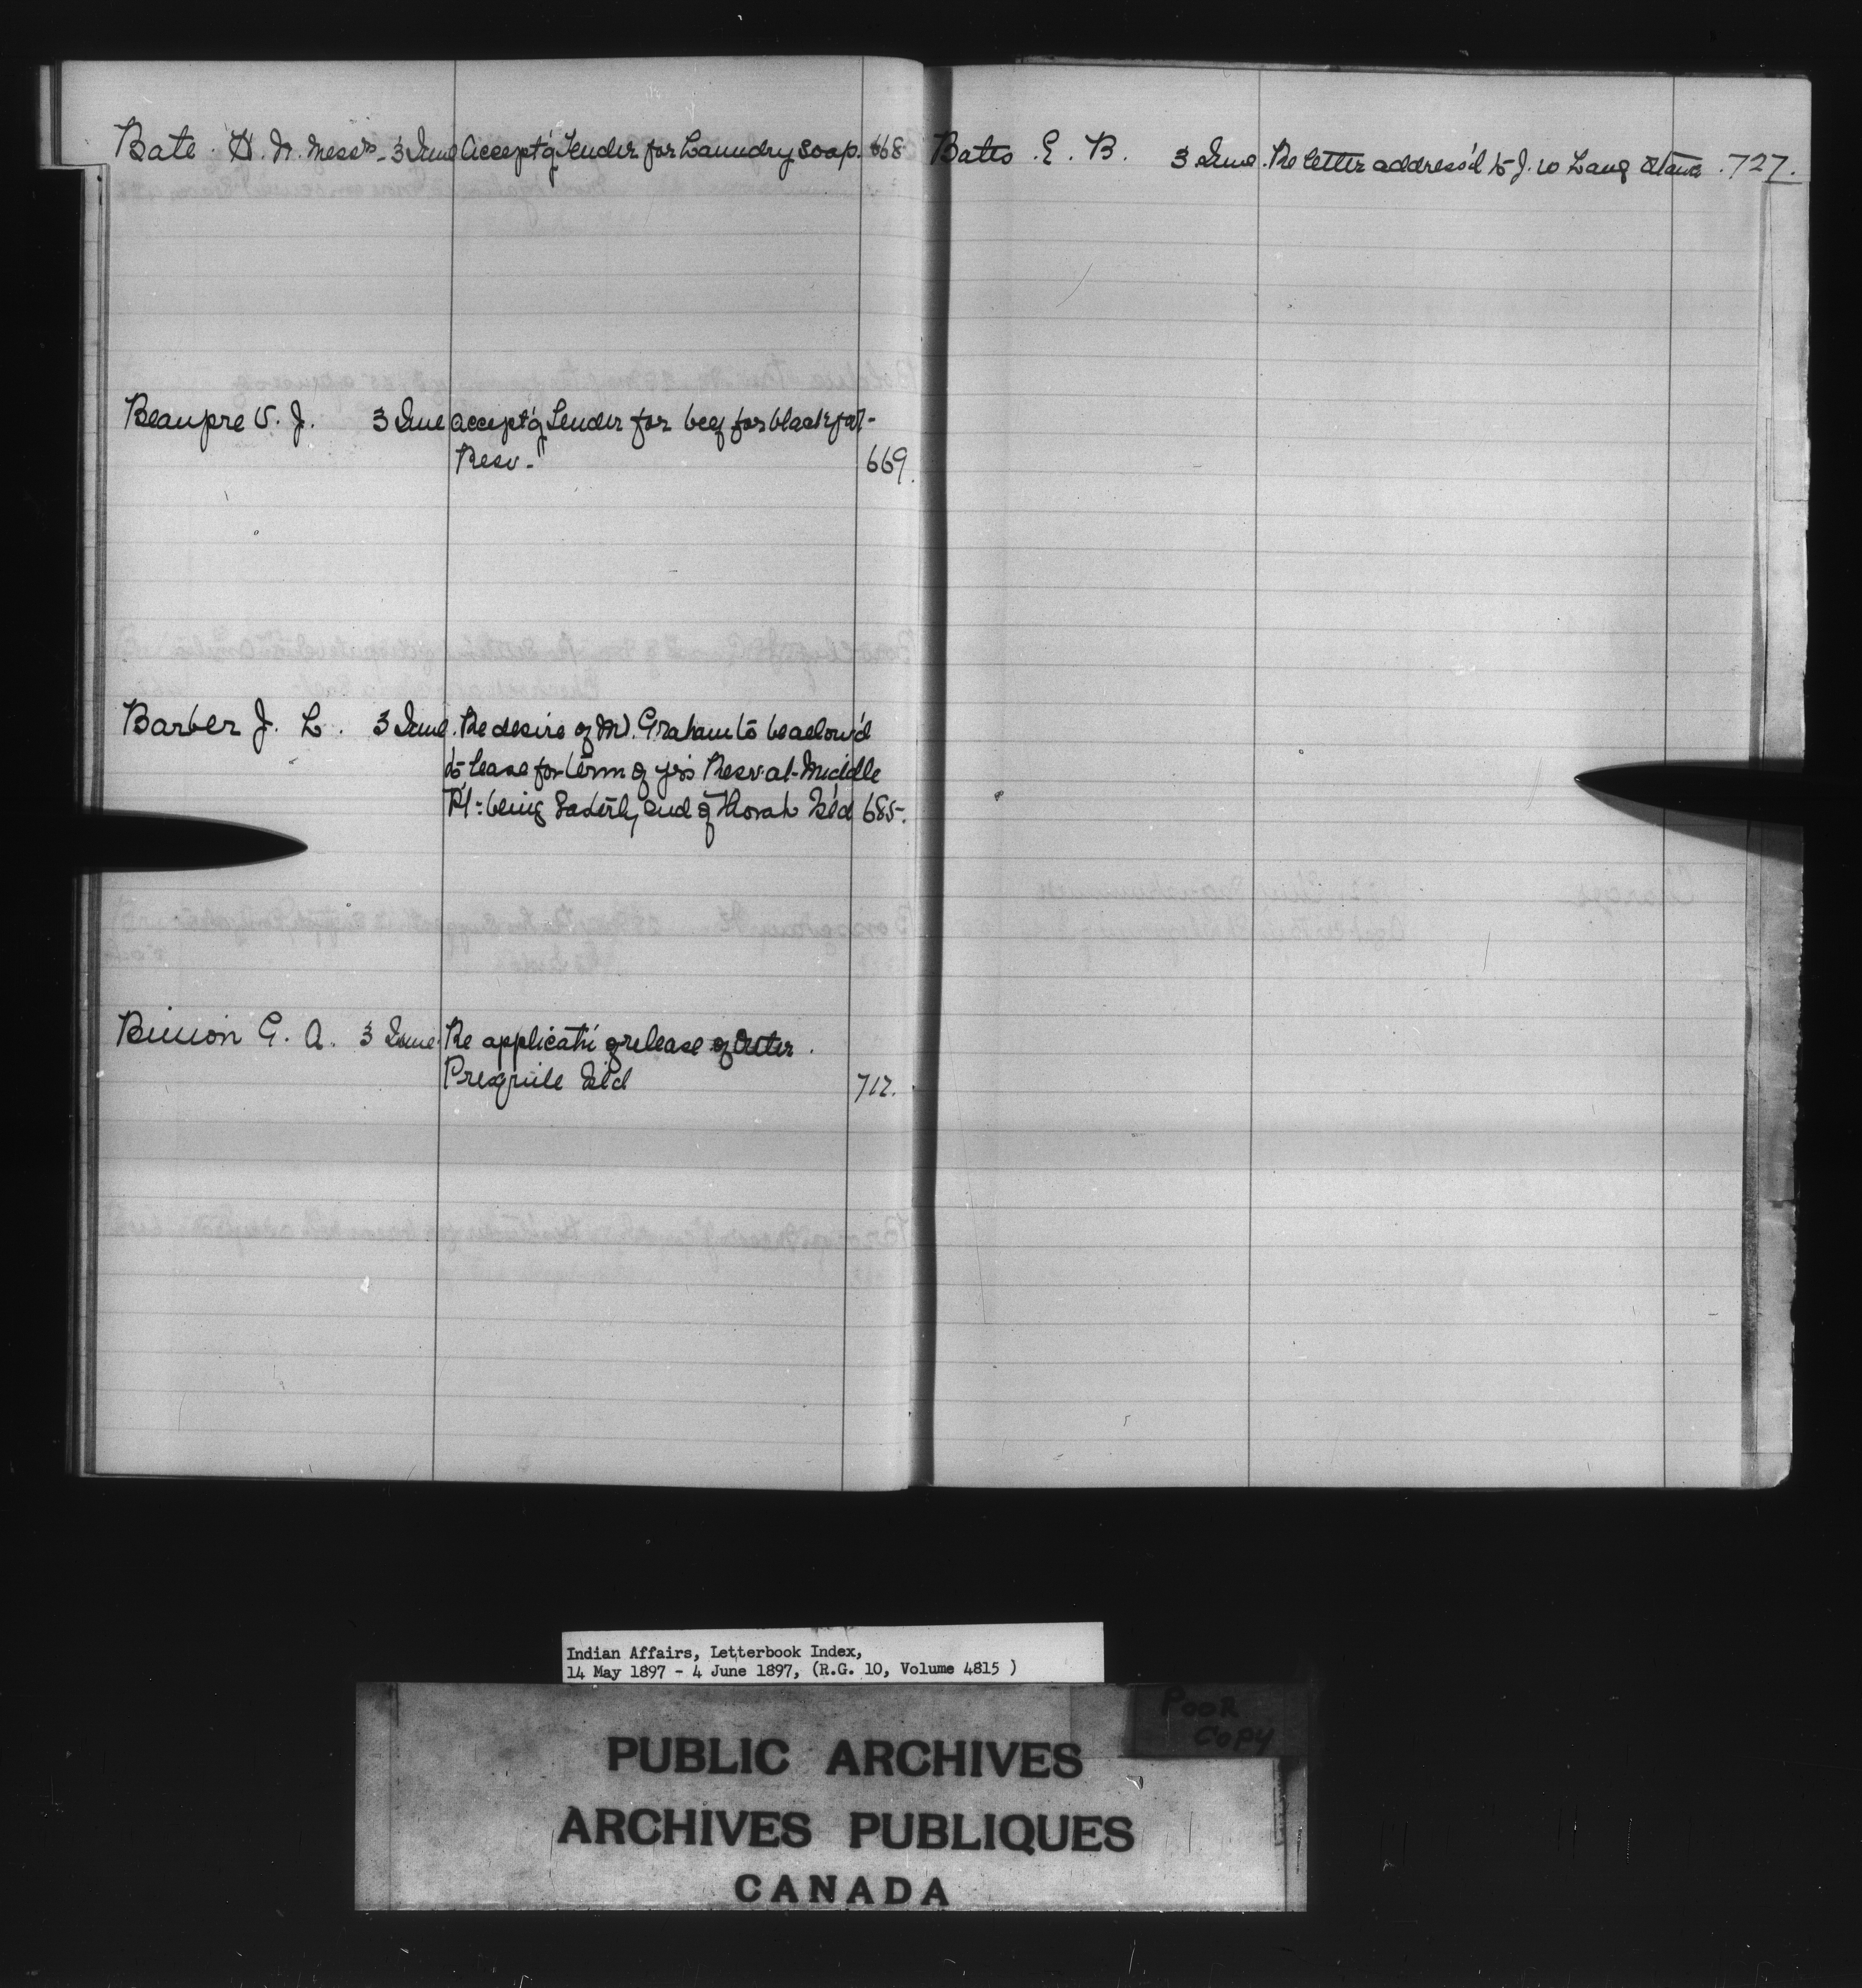 Bate. H. N. Messrs - 3 June Accept'g Tender for Laundry Soap. 668
Beaupre V. J. 3 June accept'g Tender for beef for blackfoot-
Resv- 669.
Barber J. L. 3 June. Re desire of Mr. Graham to be allow'd
to lease for term of yrs Resv. at Middle
Pt: being Easterly end of Thorah Isl'd 685.
G. A. 3 June Re applicati of release of Outer
Isl'd 717.
Bates. E. B. 3 June. Re letter address'd to J. W Lang Otawa. 727.
Indian Affairs, Letterbook Index,
14 May 1897 - 4 June 1897, (R.G. 10, Volume 4815 )
POOR
COPY
PUBLIC ARCHIVES
ARCHIVES PUBLIQUES
CANADA